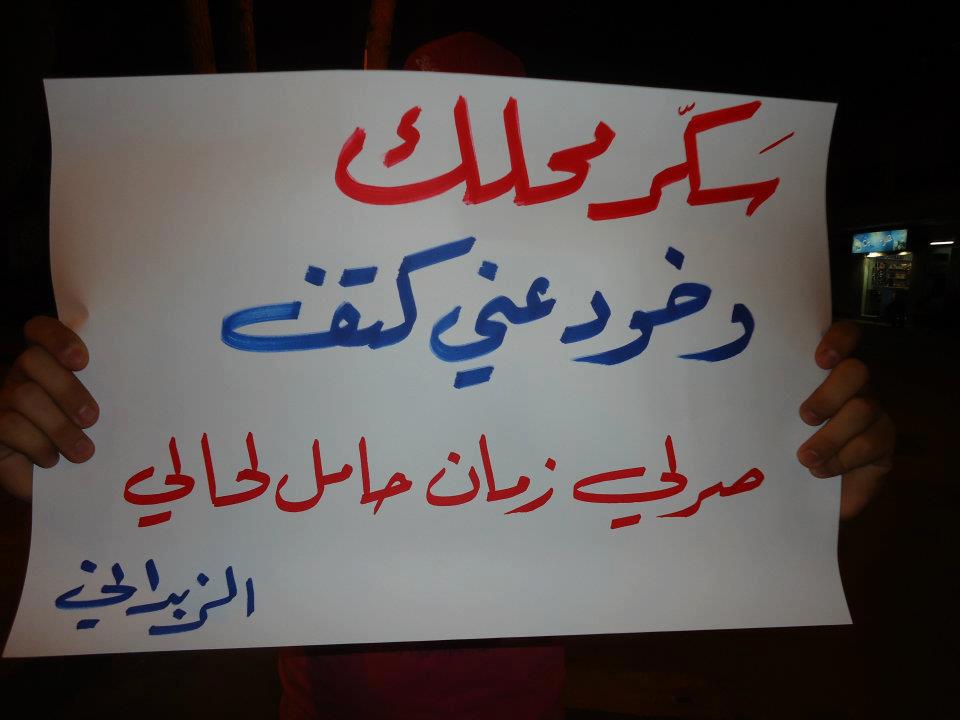 سَكّر محلك
وخود عني كتف
صرلي زمان حامل لحالي
الزبداني